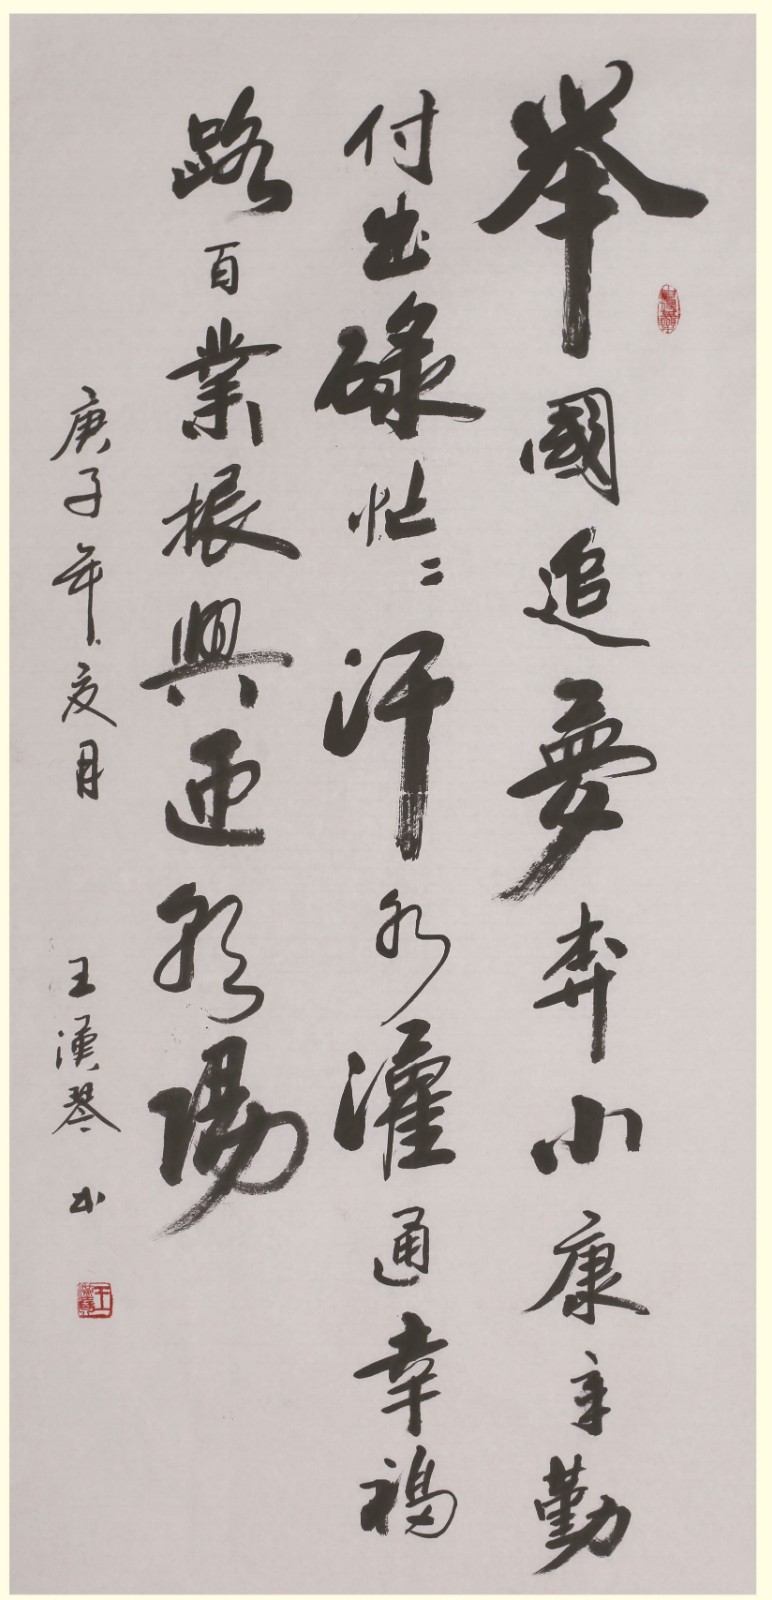 舉國追夢奔小康辛勤
付出碌忙〻汗水灌通幸福
路百業振興迎朝陽
庚子年夏月
王漢琴书